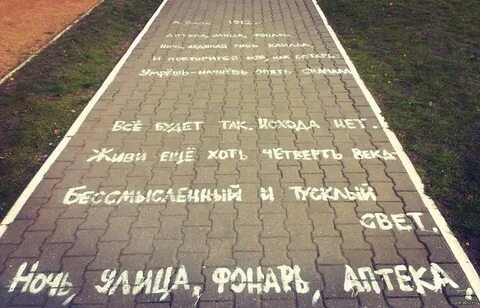 Ночь, улица, фонарь, аптека,
Бессмысленный и тусклый
свет.
Живи ещё хоть четверть века-
Всё будет так. Исхода нет.
Умрёшь-начнёшь опять сначала
И повторится всё, как встарь:
Ночь, ледяная рябь канала,
Аптека, улица, фонарь.
А.Блок 1912 г.